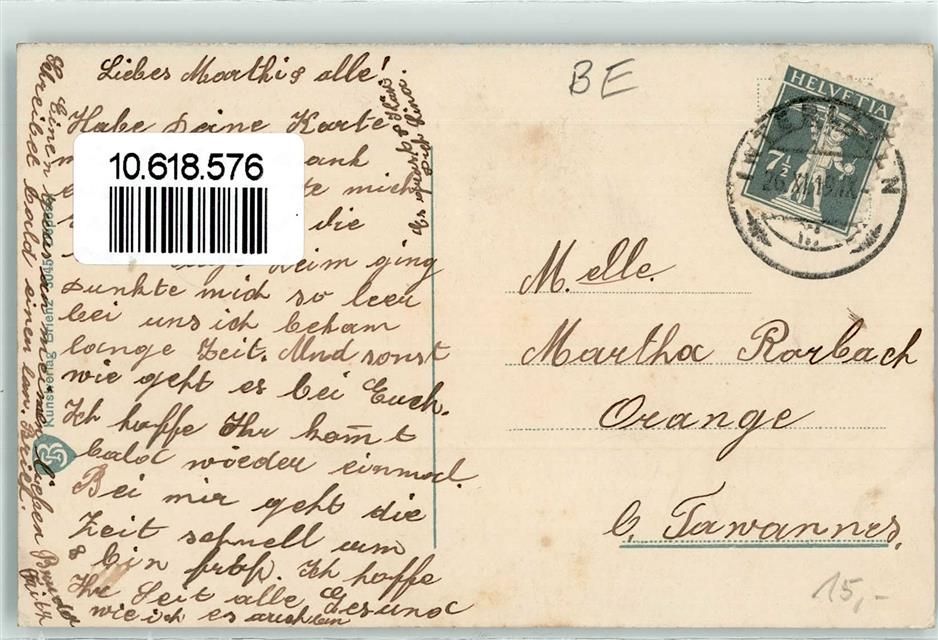 Liebes Marthi & alle!
Habe Deine Karte
ank
te mich
die
heim ging
Dunkte mich so leer
bei uns ich bekam
lange Zeit. Und sonst
wie geht es bei Euch.
Ich hoffe Ihr kom̄t
bald wieder einmal.
Bei mir geht die
Zeit schnell um
& bin froh. Ich hoffe
Ihr Seit alle Gesund
wie ich es auch bin
Es grüsst & Küsst
Dich
Einen
Schreibe bald einen
Brief.
Kunstverlag Brienz
10.618.576
BE
HELVETIA
7½
INTERLAKEN
26.XI.19.IX-
M.elle.
Martha Rorbach
Orange
b. Tawannes.
15,-